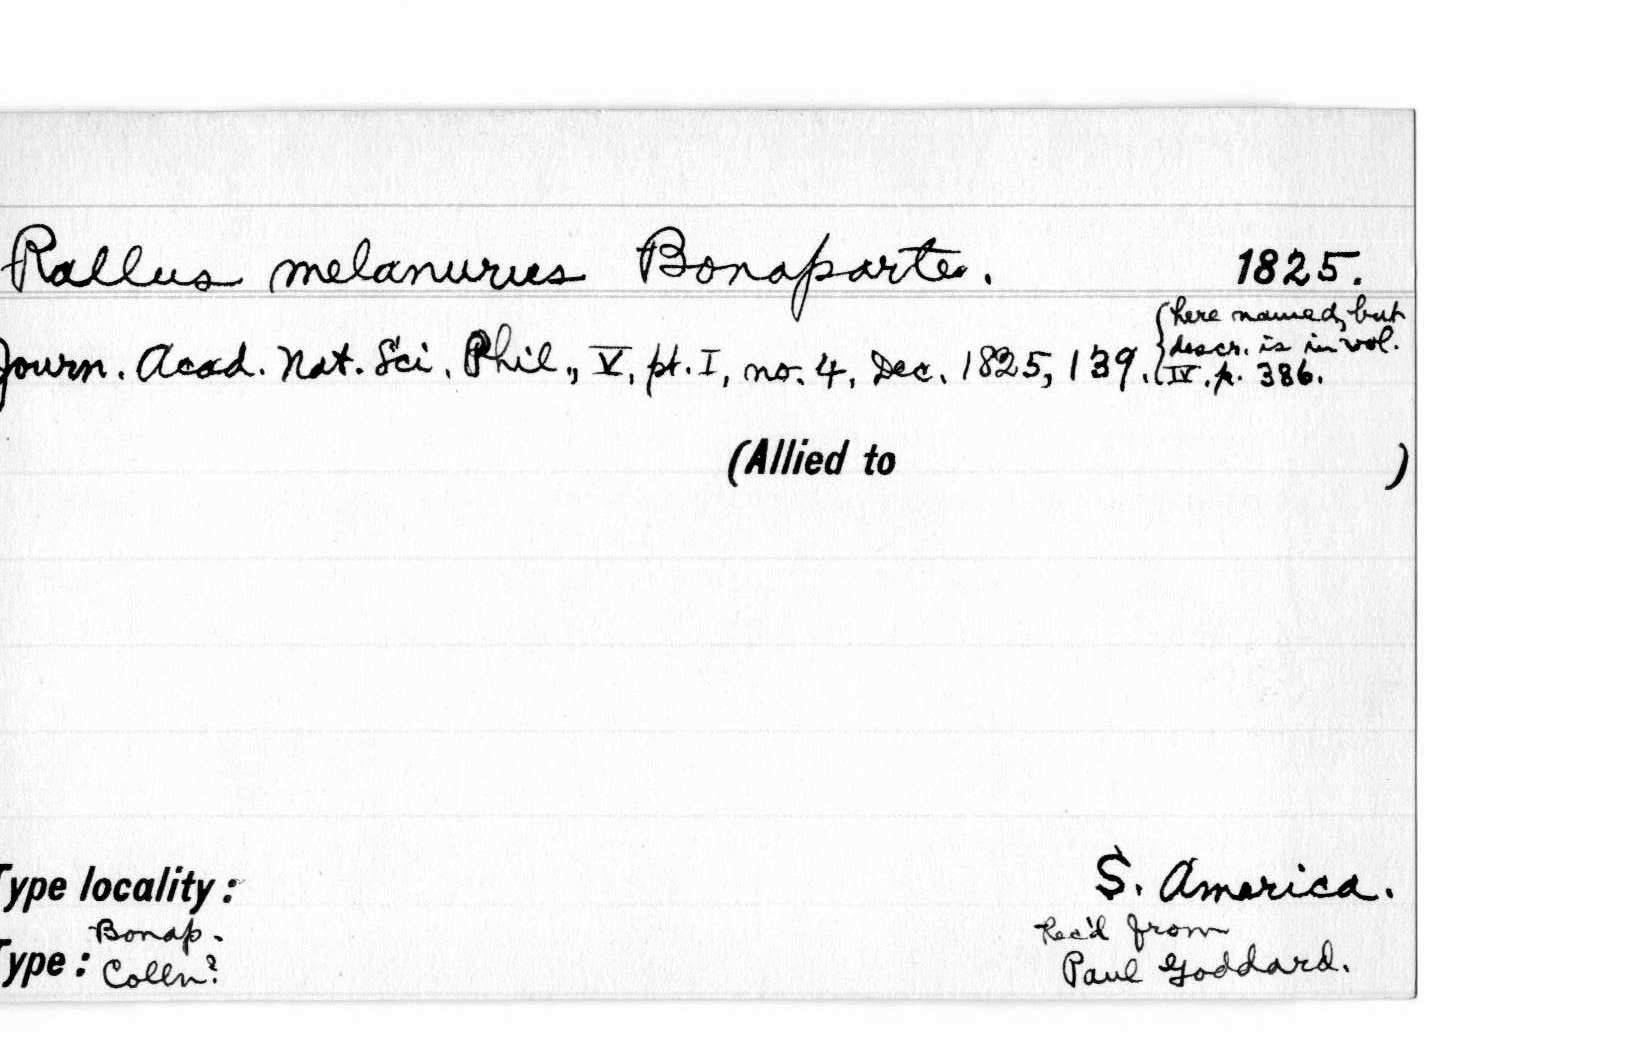 Rallus melanurus Bonaparte. 1825.
Journ. Acad. Nat. Sci. Phil., V, pt. I, no. 4, Dec. 1825, 139. {here named, but
descr. is in vol.
IV. p. 386.
(Allied to )
Type locality: S. America.
Type: Bonap. Colln? Rec'd from
Paul Goddard.